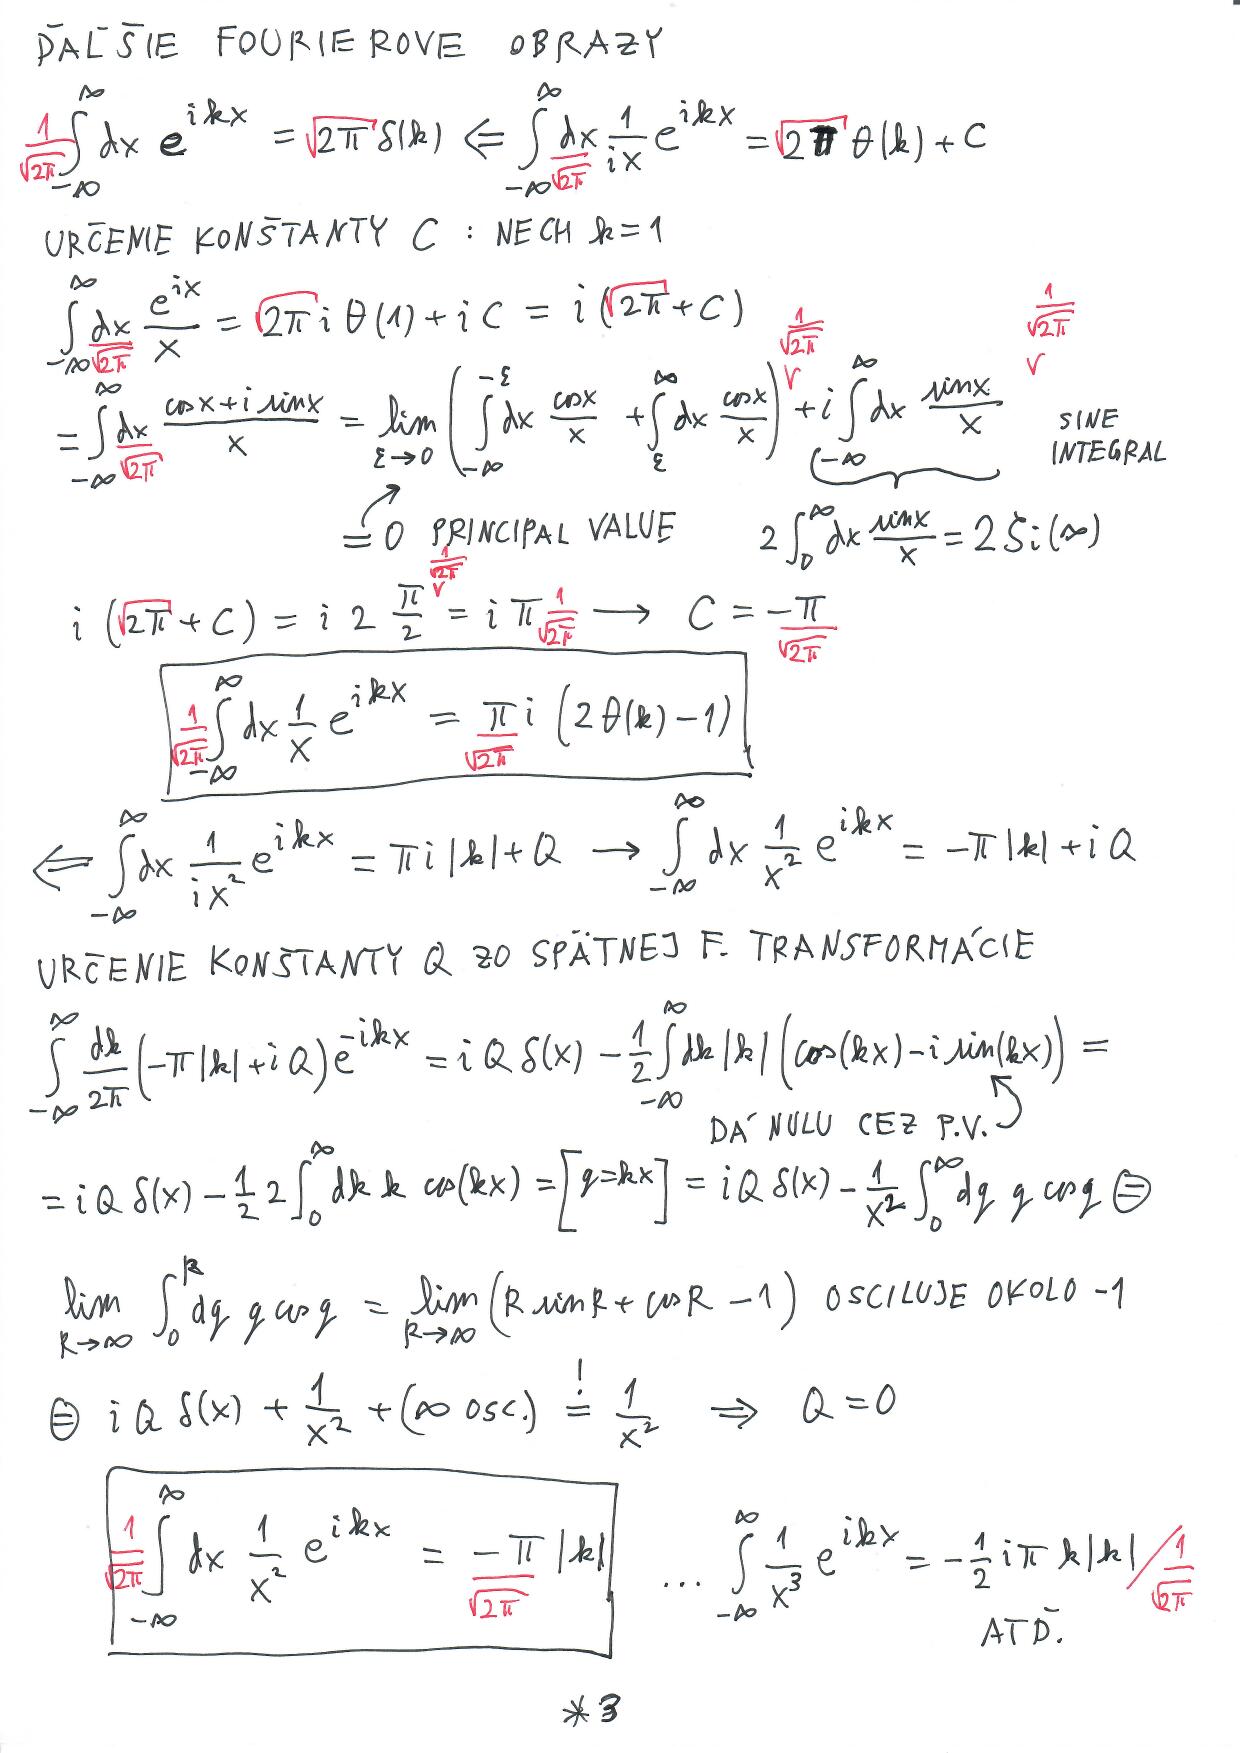 ĎALŠIE FOURIEROVE OBRAZY
1/√2π ∫_{-∞}^{∞} dx e^{ikx} = √2π δ(k) ⇐ ∫_{-∞}^{∞} dx/√2π 1/ix e^{ikx} = √2π θ(k) + C
URČENIE KONŠTANTY C : NECH k=1
∫_{-∞}^{∞} dx/√2π e^{ix}/x = √2π i θ(1) + i C = i (√2π + C)
= ∫_{-∞}^{∞} dx/√2π (cosx + i sinx)/x = lim_{ε→0} ( ∫_{-∞}^{-ε} dx cosx/x + ∫_{ε}^{∞} dx cosx/x ) 1/√2π + i ∫_{-∞}^{∞} dx sinx/x 1/√2π SINE INTEGRAL
= 0 PRINCIPAL VALUE 2∫_0^∞ dx sinx/x = 2 Si(∞)
i (√2π + C) = i 2 π/2 1/√2π = i π 1/√2π → C = -π/√2π
1/√2π ∫_{-∞}^{∞} dx 1/x e^{ikx} = π/√2π i (2θ(k) - 1)
⇐ ∫_{-∞}^{∞} dx 1/ix² e^{ikx} = π i |k| + Q → ∫_{-∞}^{∞} dx 1/x² e^{ikx} = -π |k| + i Q
URČENIE KONŠTANTY Q ZO SPÄTNEJ F. TRANSFORMÁCIE
∫_{-∞}^{∞} dk/2π (-π|k| + iQ) e^{-ikx} = i Q δ(x) - 1/2 ∫_{-∞}^{∞} dk |k| (cos(kx) - i sin(kx)) =
DÁ NULU CEZ P.V.
= i Q δ(x) - 1/2 2 ∫_0^∞ dk k cos(kx) = [q=kx] = i Q δ(x) - 1/x² ∫_0^∞ dq q cos q ⊜
lim_{R→∞} ∫_0^R dq q cos q = lim_{R→∞} (R sinR + cosR - 1) OSCILUJE OKOLO -1
⊜ i Q δ(x) + 1/x² + (∞ OSC.) =! 1/x² ⇒ Q = 0
1/√2π ∫_{-∞}^{∞} dx 1/x² e^{ikx} = -π/√2π |k| ... ∫_{-∞}^{∞} 1/x³ e^{ikx} = -1/2 iπ k|k| / 1/√2π
ATĎ.
*3